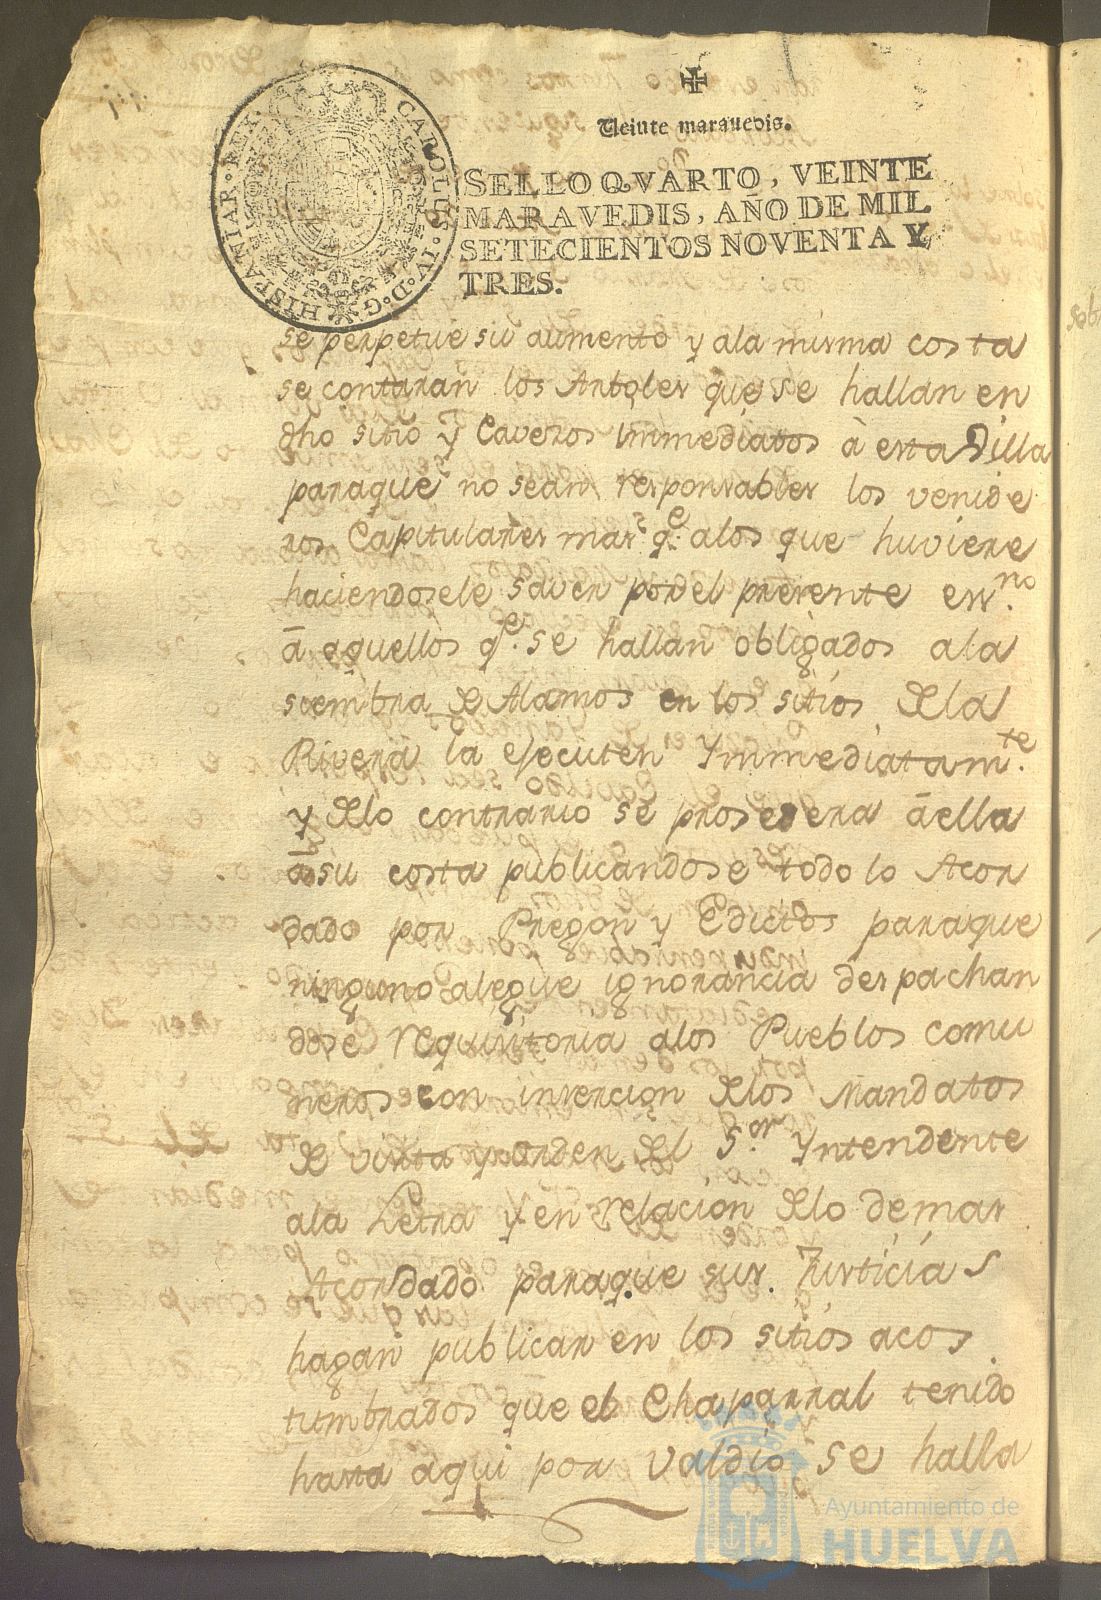 CAROLUS · IV · D · G · HISPANIAR · REX ·
Veinte maravedis.
SELLO QVARTO, VEINTE
MARAVEDIS, AÑO DE MIL
SETECIENTOS NOVENTA Y
TRES.
se perpetue su aumento y ala misma costa
se contaran los Arboles que se hallan en
dho sitio y Caveros Immediatos à esta Villa
paraque no sean responsables los venide
ros Capitulares mas q.e alos que huviere
haciendosele saver por el presente ess.no
â aquellos q.e se hallan obligados ala
siembra de Alamos en los sitios dela
Rivera la ejecuten Ymmediatam.te
y delo contrario se prosedera âella
âsu costa publicandose todo lo Acor
dado por Pregon y Edictos paraque
ninguno alegue ignorancia despachan
dose requisitoria alos Pueblos comu
neros con insercion delos Mandatos
de visita y orden del S.or Yntendente
ala Letra y en relacion delo demas
Acordado paraque sus Justicias
hagan publicar en los sitios acos
tumbrados que el Chaparral tenido
hasta aqui por valdio se halla
sob
Ayuntamiento de
HUELVA